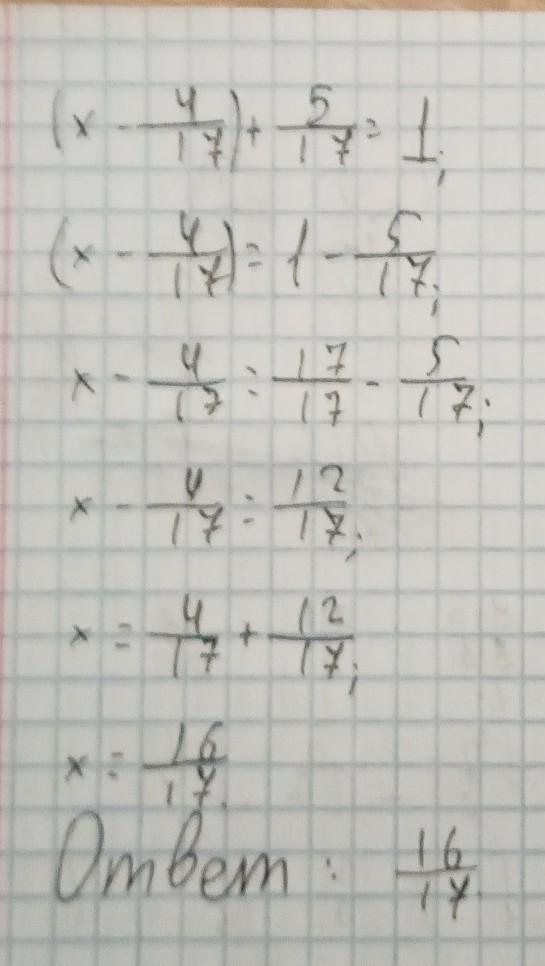 (x - 4/17) + 5/17 = 1;
(x - 4/17) = 1 - 5/17;
x - 4/17 = 17/17 - 5/17;
x - 4/17 = 12/17;
x = 4/17 + 12/17;
x = 16/17.
Ответ: 16/17.